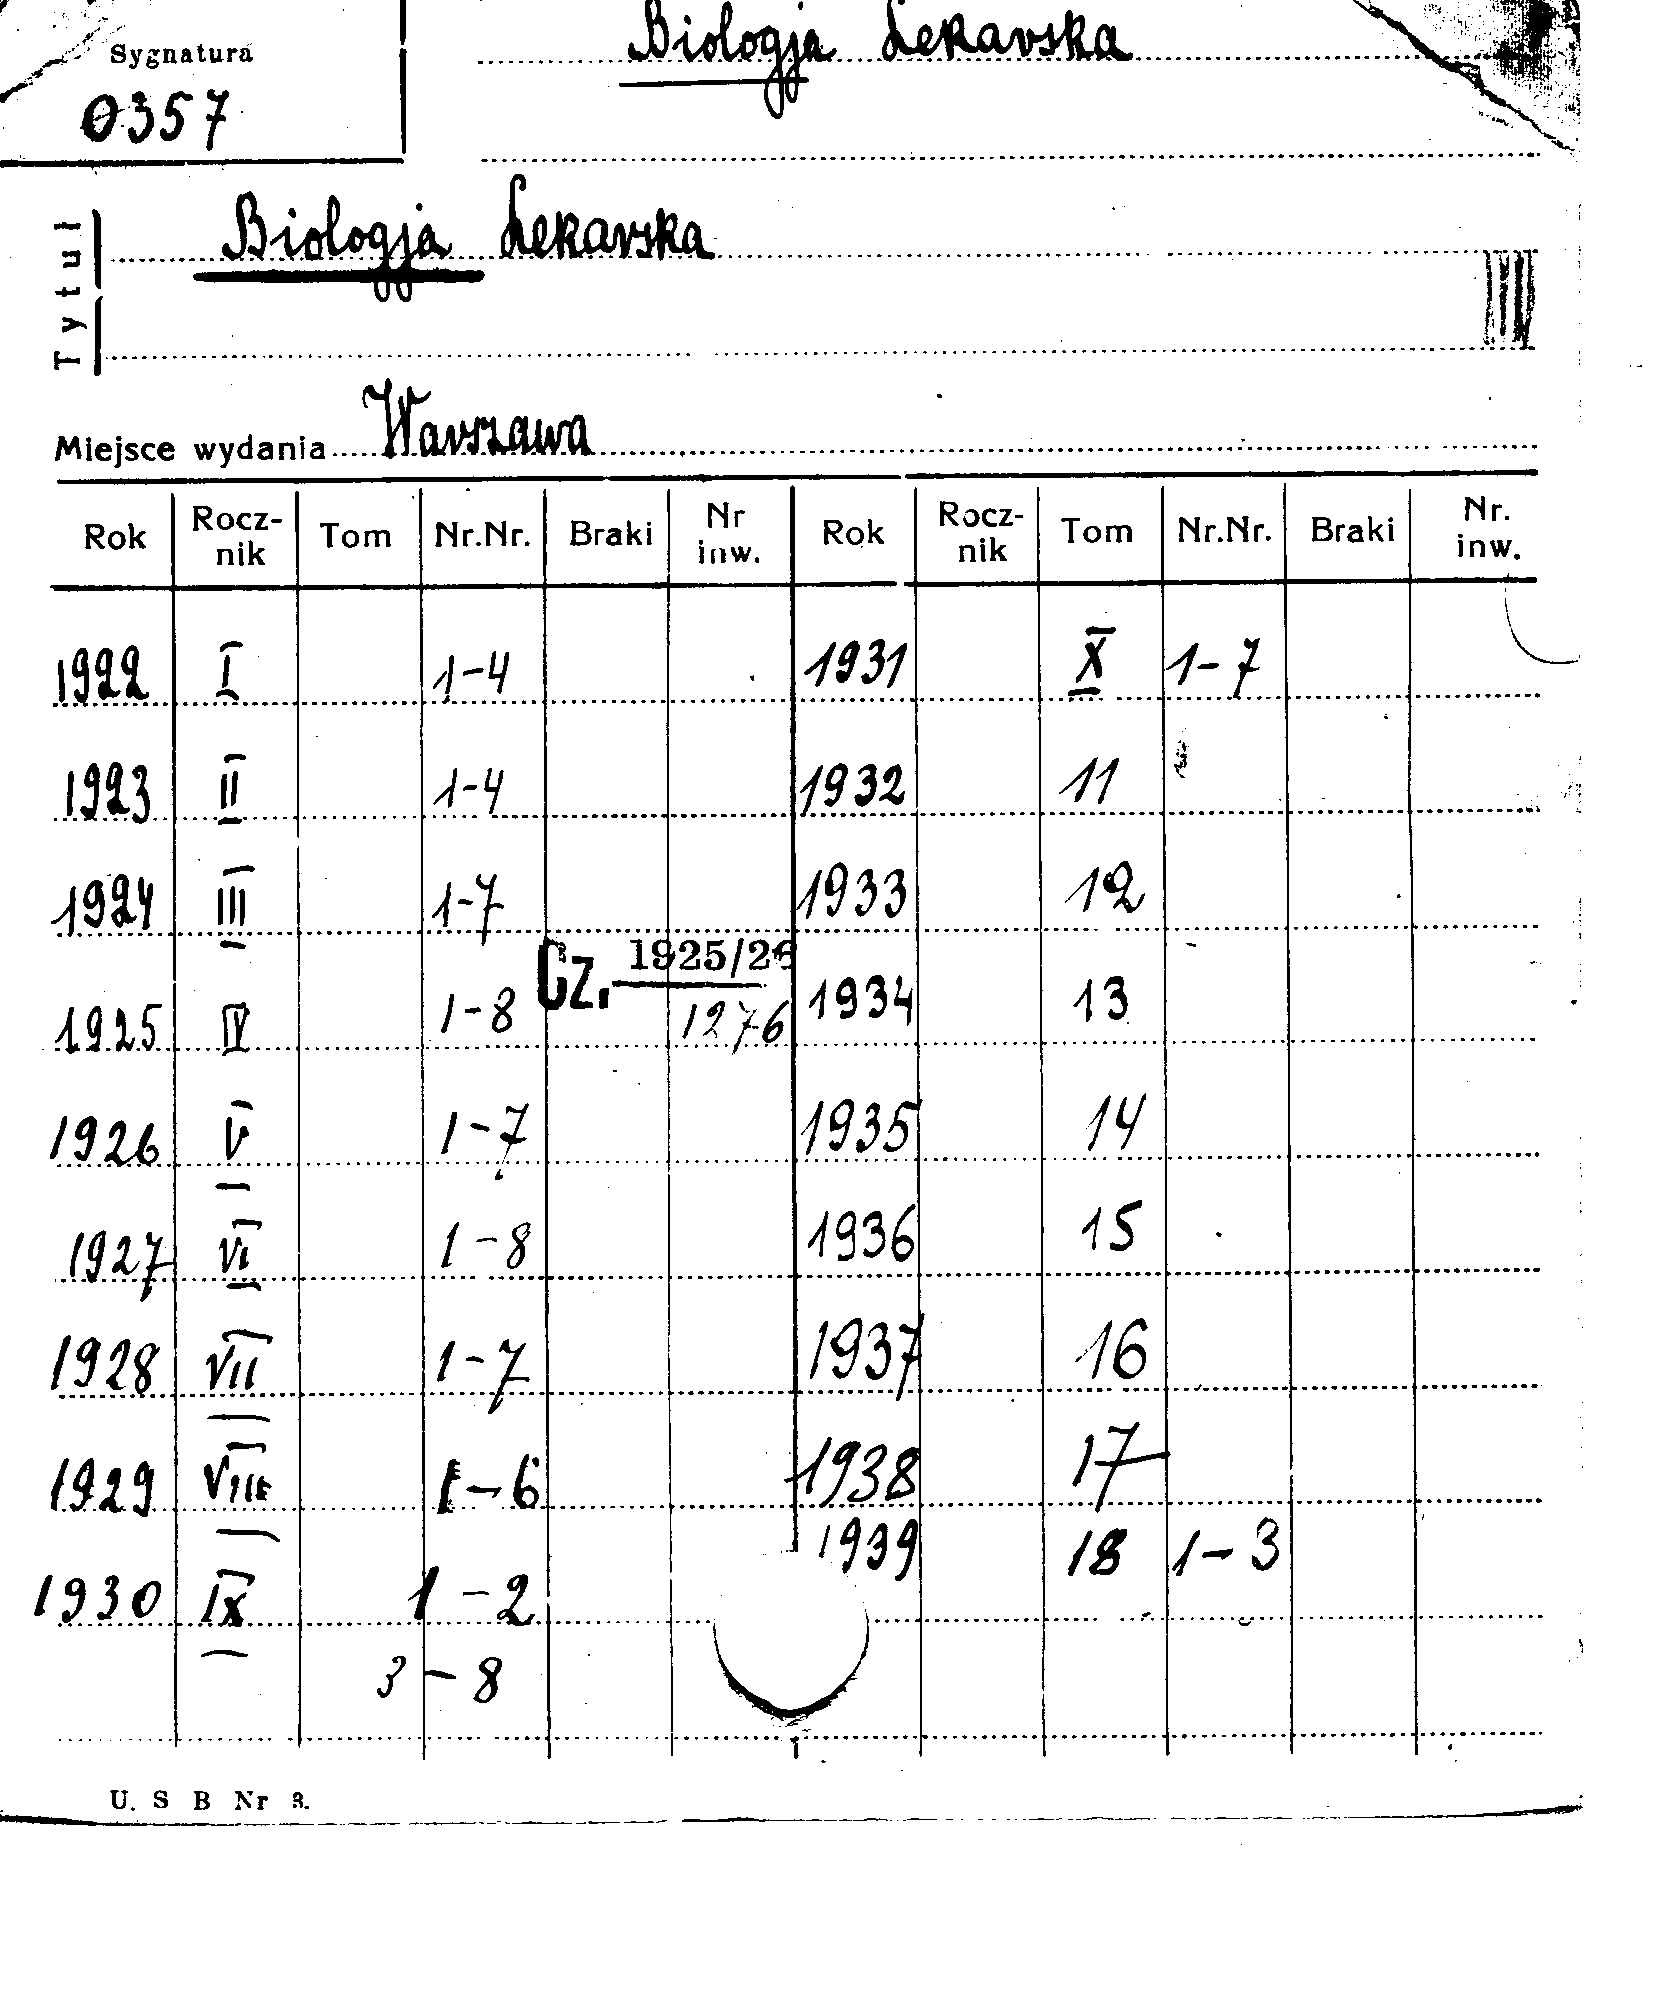 Biologja Lekarska
Sygnatura
0357
Tytuł
Biologja Lekarska
Miejsce wydania Warszawa
Rok Rocz-nik Tom Nr.Nr. Braki Nr inw. Rok Rocz-nik Tom Nr.Nr. Braki Nr. inw.
1922 I 1-4 1931 X 1-7
1923 II 1-4 1932 11
1924 III 1-7 1933 12
Cz. 1925/26
1925 IV 1-8 1276 1934 13
1926 V 1-7 1935 14
1927 VI 1-8 1936 15
1928 VII 1-7 1937 16
1929 VIII 1-6 1938 17
1939 18 1-3
1930 IX 1-2
3-8
U. S B Nr 3.